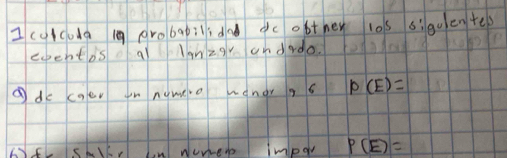 I calcula la probabilidad de obtner los sigulentes
eventos al lanzar un dado.
a) de caer un numero menor a 6 P(E)=
b) de salir un numero impar P(E)=